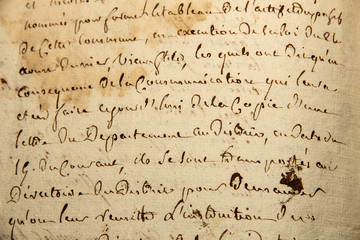 nommés pour former le tableau de l'actif et du passif
de cette Commune, en execution de la loi du 24
avril dernier, lesquels ont dit qu'en
Consequence de la Communication qui leur a
été faire aujourd'hui de la Copie d'une
lettre du Departement au District, en date du
19. du Courant, ils se sont transportés au
Directoire du District pour demander
qu'on leur remette l'instruction